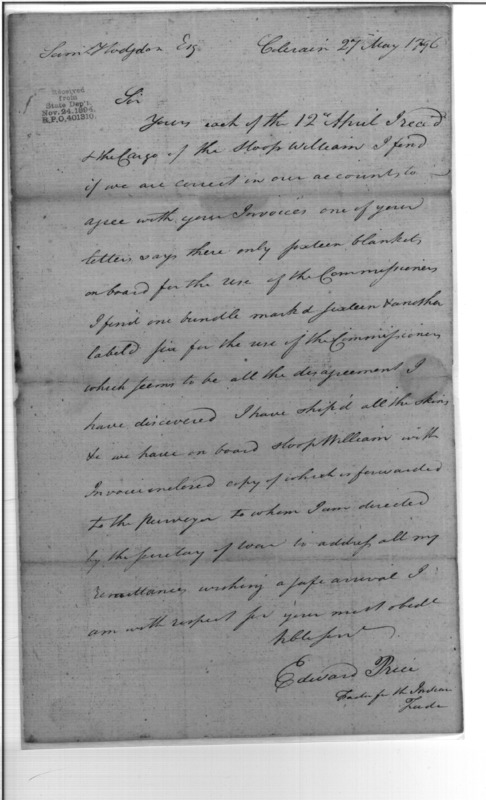 Saml Hodgdon Esq Colerain 27th May 1796
Received
from
State Dep't.
Nov. 24, 1894.
R.P.O, 401310.
Sir
Yours each of the 12th April I rec'd
& the Cargo of the Sloop William I find
if we are correct in our accounts to
agree with your Invoices one of your
letters says there only sixteen blankets
on board for the use of the Commissioners
I find one bundle mark'd sixteen & another
label'd six for the use of the Commissioners
which seems to be all the disagreement I
have discovered I have ship'd all the skins
&c we have on board sloop William with
Invoice enclosed copy of which is forwarded
to the Purveyor to whom I am directed
by the secretary of war to address all my
remittances wishing a safe arrival I
am with respect sir your most obedt
hble servt
Edward Price
Factor for the Indian
Trade